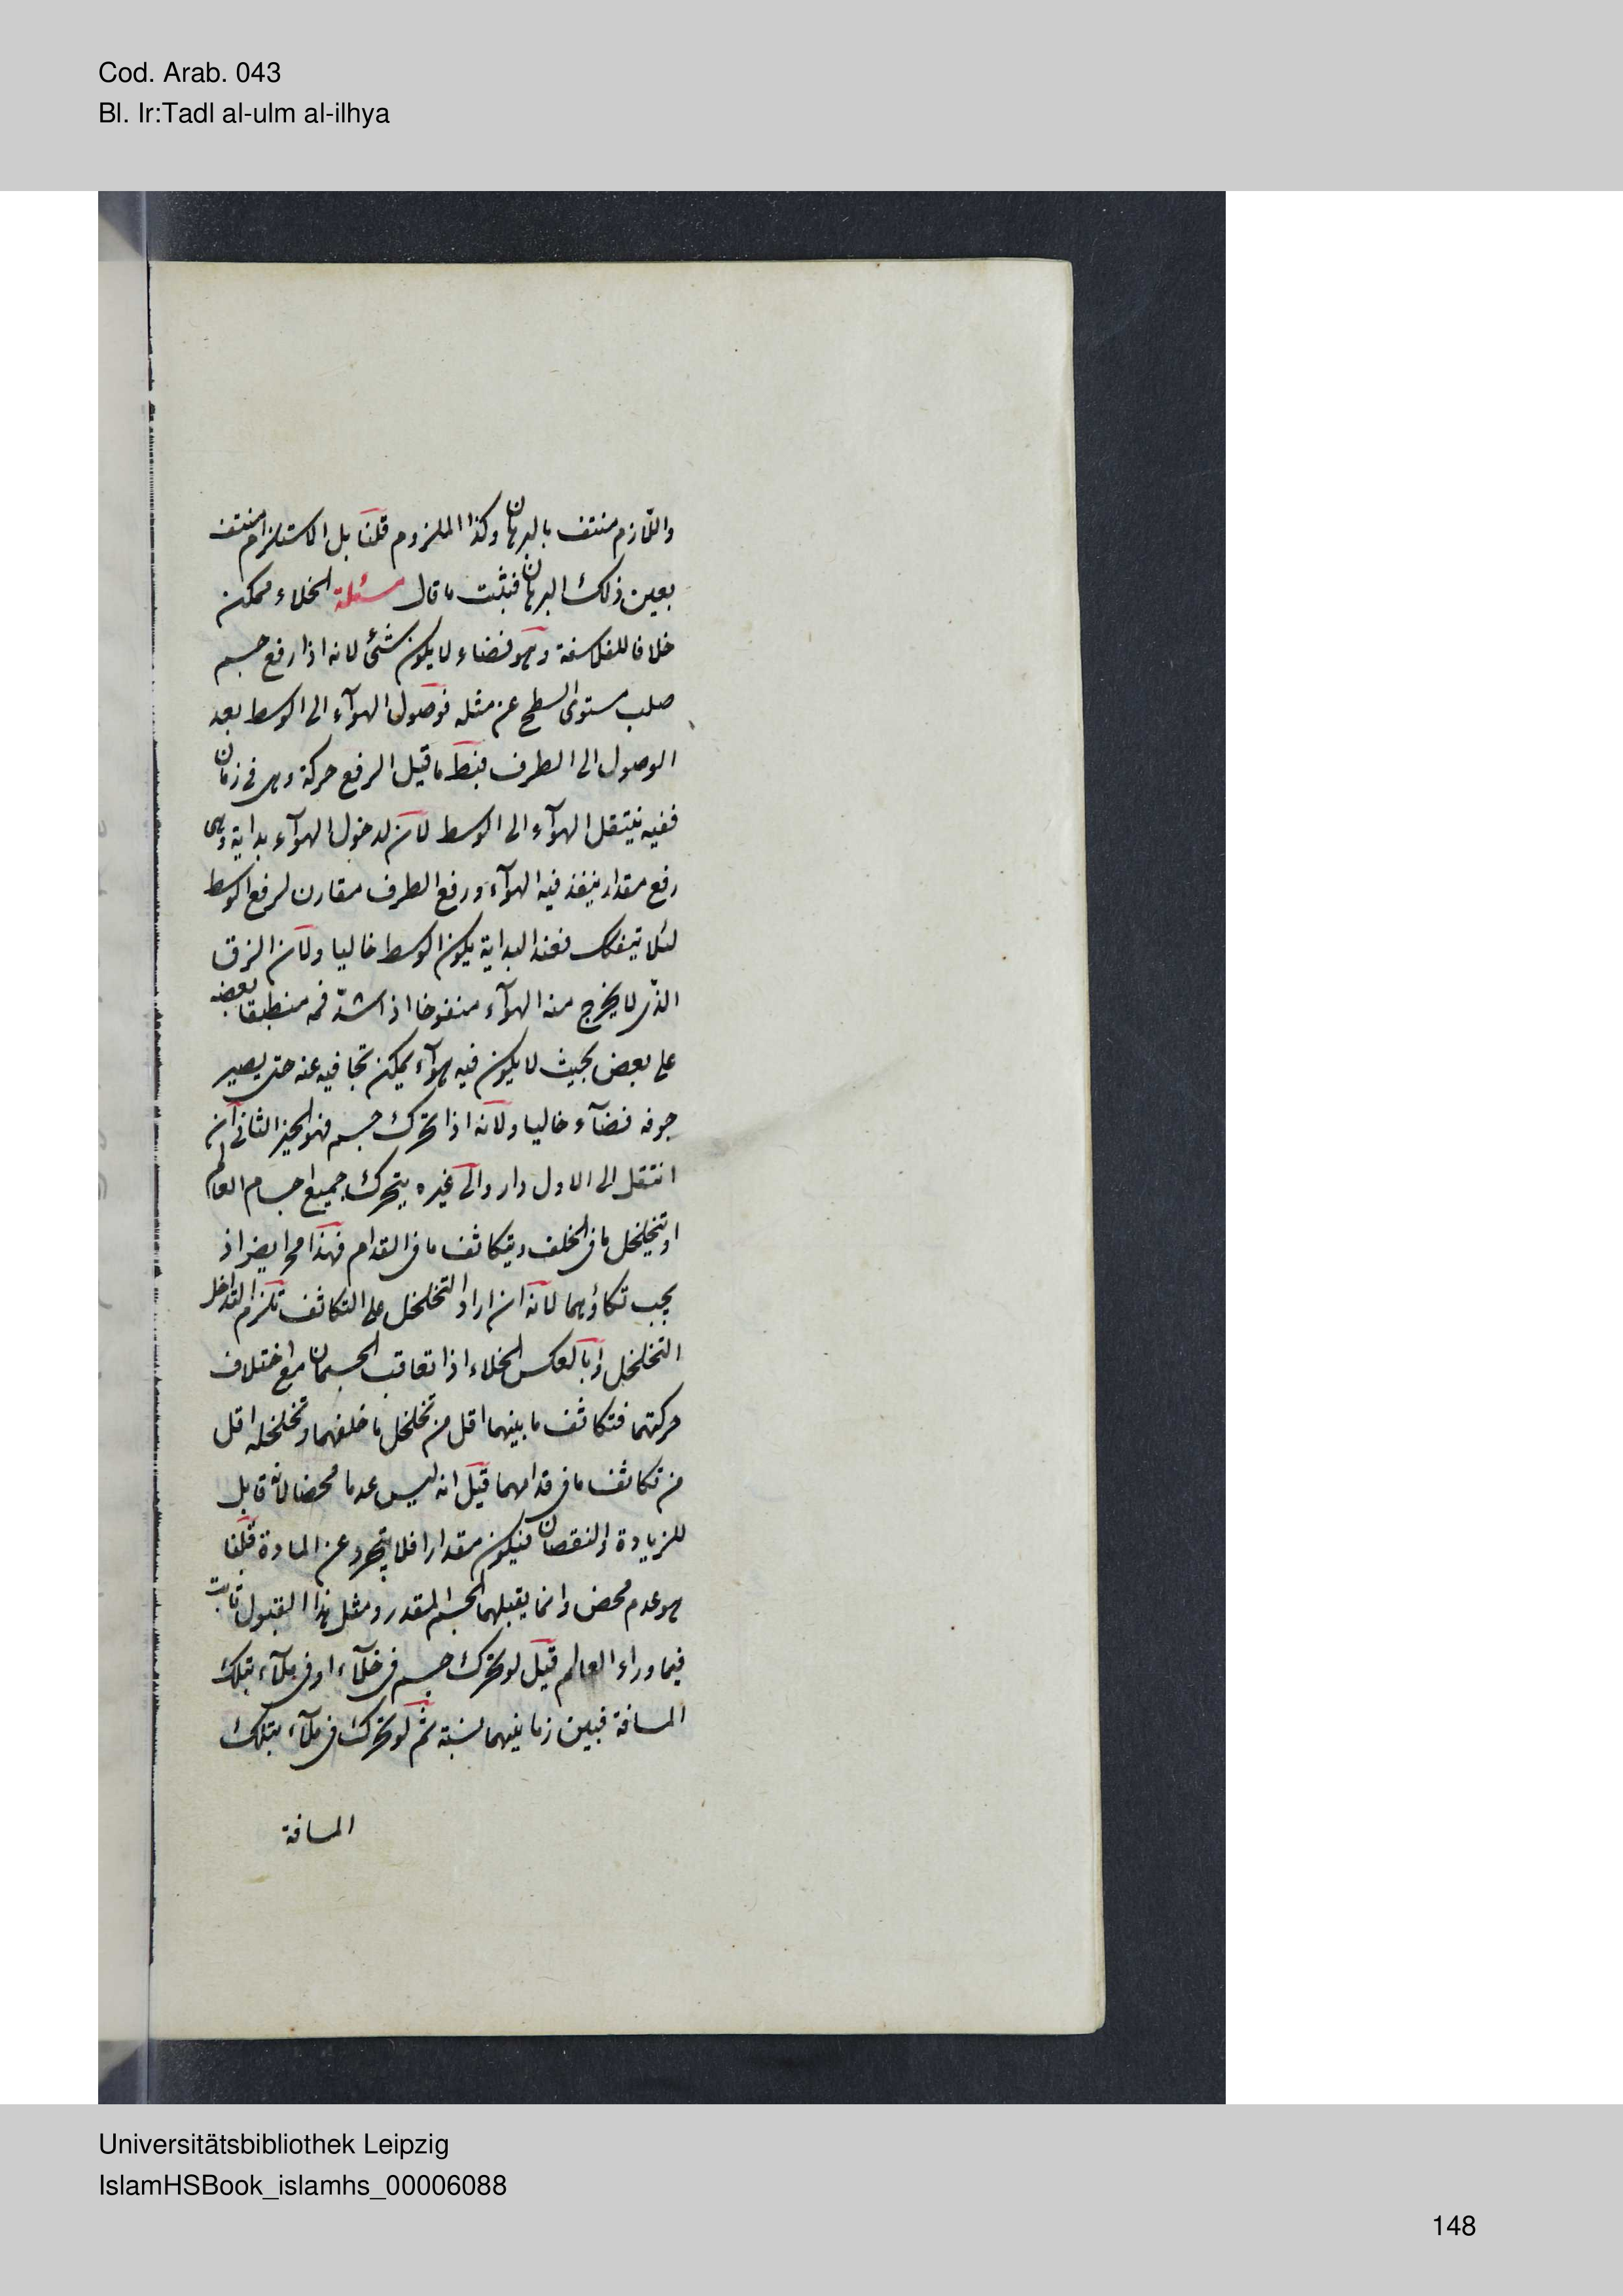 Cod. Arab. 043
Bl. Ir:Tadl al-ulm al-ilhya
واللازم منتف بالبرهان وكذا الملزوم قلنا بل الاستلزام منتف
بعين ذلك البرهان فيثبت ما قال مسئلة الخلاء ممكن
خلافا للفلاسفة وهو فضاء لا يكون شئ لانه اذا رفع جسم
صلب مستوى السطح عن مثله فوصول الهوآء الى الوسط بعد
الوصول الى الطرف قيل الرفع حركة وهى فى زمان
ففيه ينتقل الهوآء الى الوسط لان لدخول الهوآء بداية وهى
رفع مقدار ينفذ فيه الهوآء ورفع الطرف مقارن لرفع الوسط
لئلا ينفك فعند البداية يكون الوسط خاليا ولان الزق
الذى لا يخرج منه الهوآء منفوخا اذا شد فمه منطبقا بعضه
على بعض بحيث لا يكون فيه هوآء يمكن تجافيه عنه حتى يصير
جوفه فضآء خاليا ولانه اذا تحرك جسم فهو الحيز الثانى ان
انتقل الى الاول دار والى غيره يتحرك جميع اجسام العالم
او يتخلخل ما فى الخلف ويتكاثف ما فى القدام فهذا اذ
يجب تكاؤهما لانه ان اراد التخلخل على التكاثف تلزم
التخلخل وبالعكس الخلاء اذا تعاقب الجسمان مع اختلاف
حركتهما فتكاثف ما بينهما اقل من تخلخل ما خلفهما وتخلخله اقل
من تكاثف ما فى قدامهما قيل انه ليس عدما محضا لانه قابل
للزيادة والنقصان فيكون مقدارا فلا يتجرد عن المادة قلنا
هو عدم محض وانما يقبلهما الجسم المقدر ومثل هذا القبول ثابت
فيما وراء العالم قيل لو تحرك جسم فى خلآء او فى ملآء بتلك
المسافة فبين زمانيهما نسبة ثم لو تحرك فى ملآء بتلك
المسافة
Universitätsbibliothek Leipzig
IslamHSBook_islamhs_00006088
148